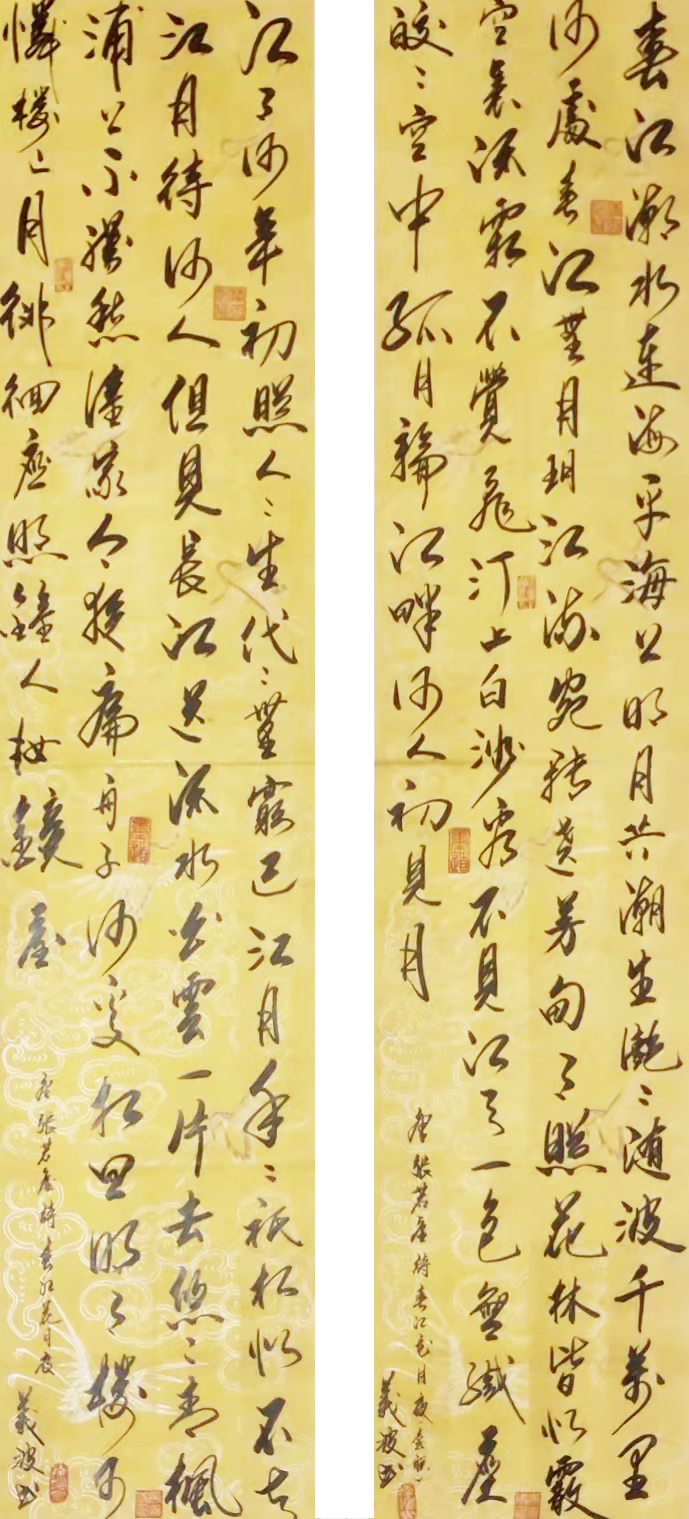 春江潮水連海平海上明月共潮生灧々随波千萬里
何處春江無月明江流宛轉遶芳甸月照花林皆似霰
空裏流霜不覺飛汀上白沙看不見江天一色無纖塵
皎々空中孤月輪江畔何人初見月
唐張若虛詩春江花月夜
義波书
江月何年初照人々生代々無窮已江月年々祇相似不知
江月待何人但見長江送流水白雲一片去悠々青楓
浦上不勝愁誰家今夜扁舟子何處相思明月樓可
憐樓上月徘徊應照離人妝鏡臺
唐張若虛詩春江花月夜
義波书